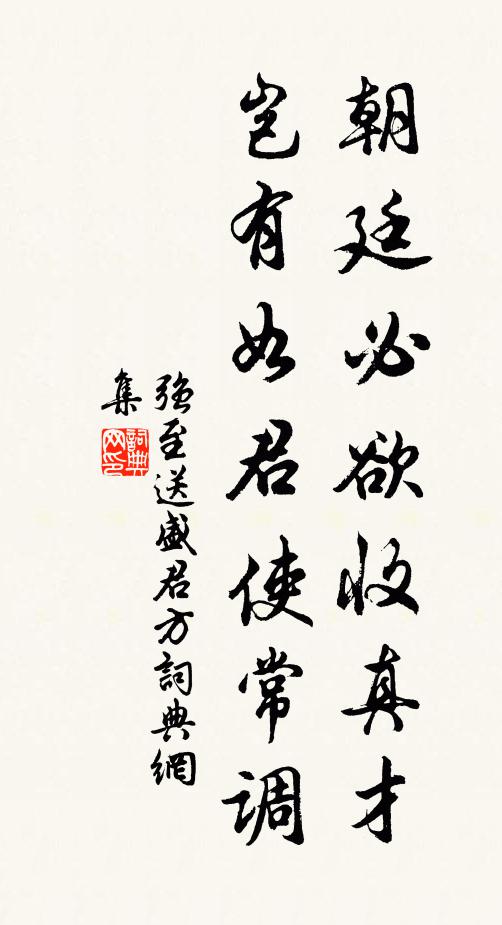 朝廷必欲收真才
豈有如君使常调
强至送盛君方詞典網
集
詞典
网印